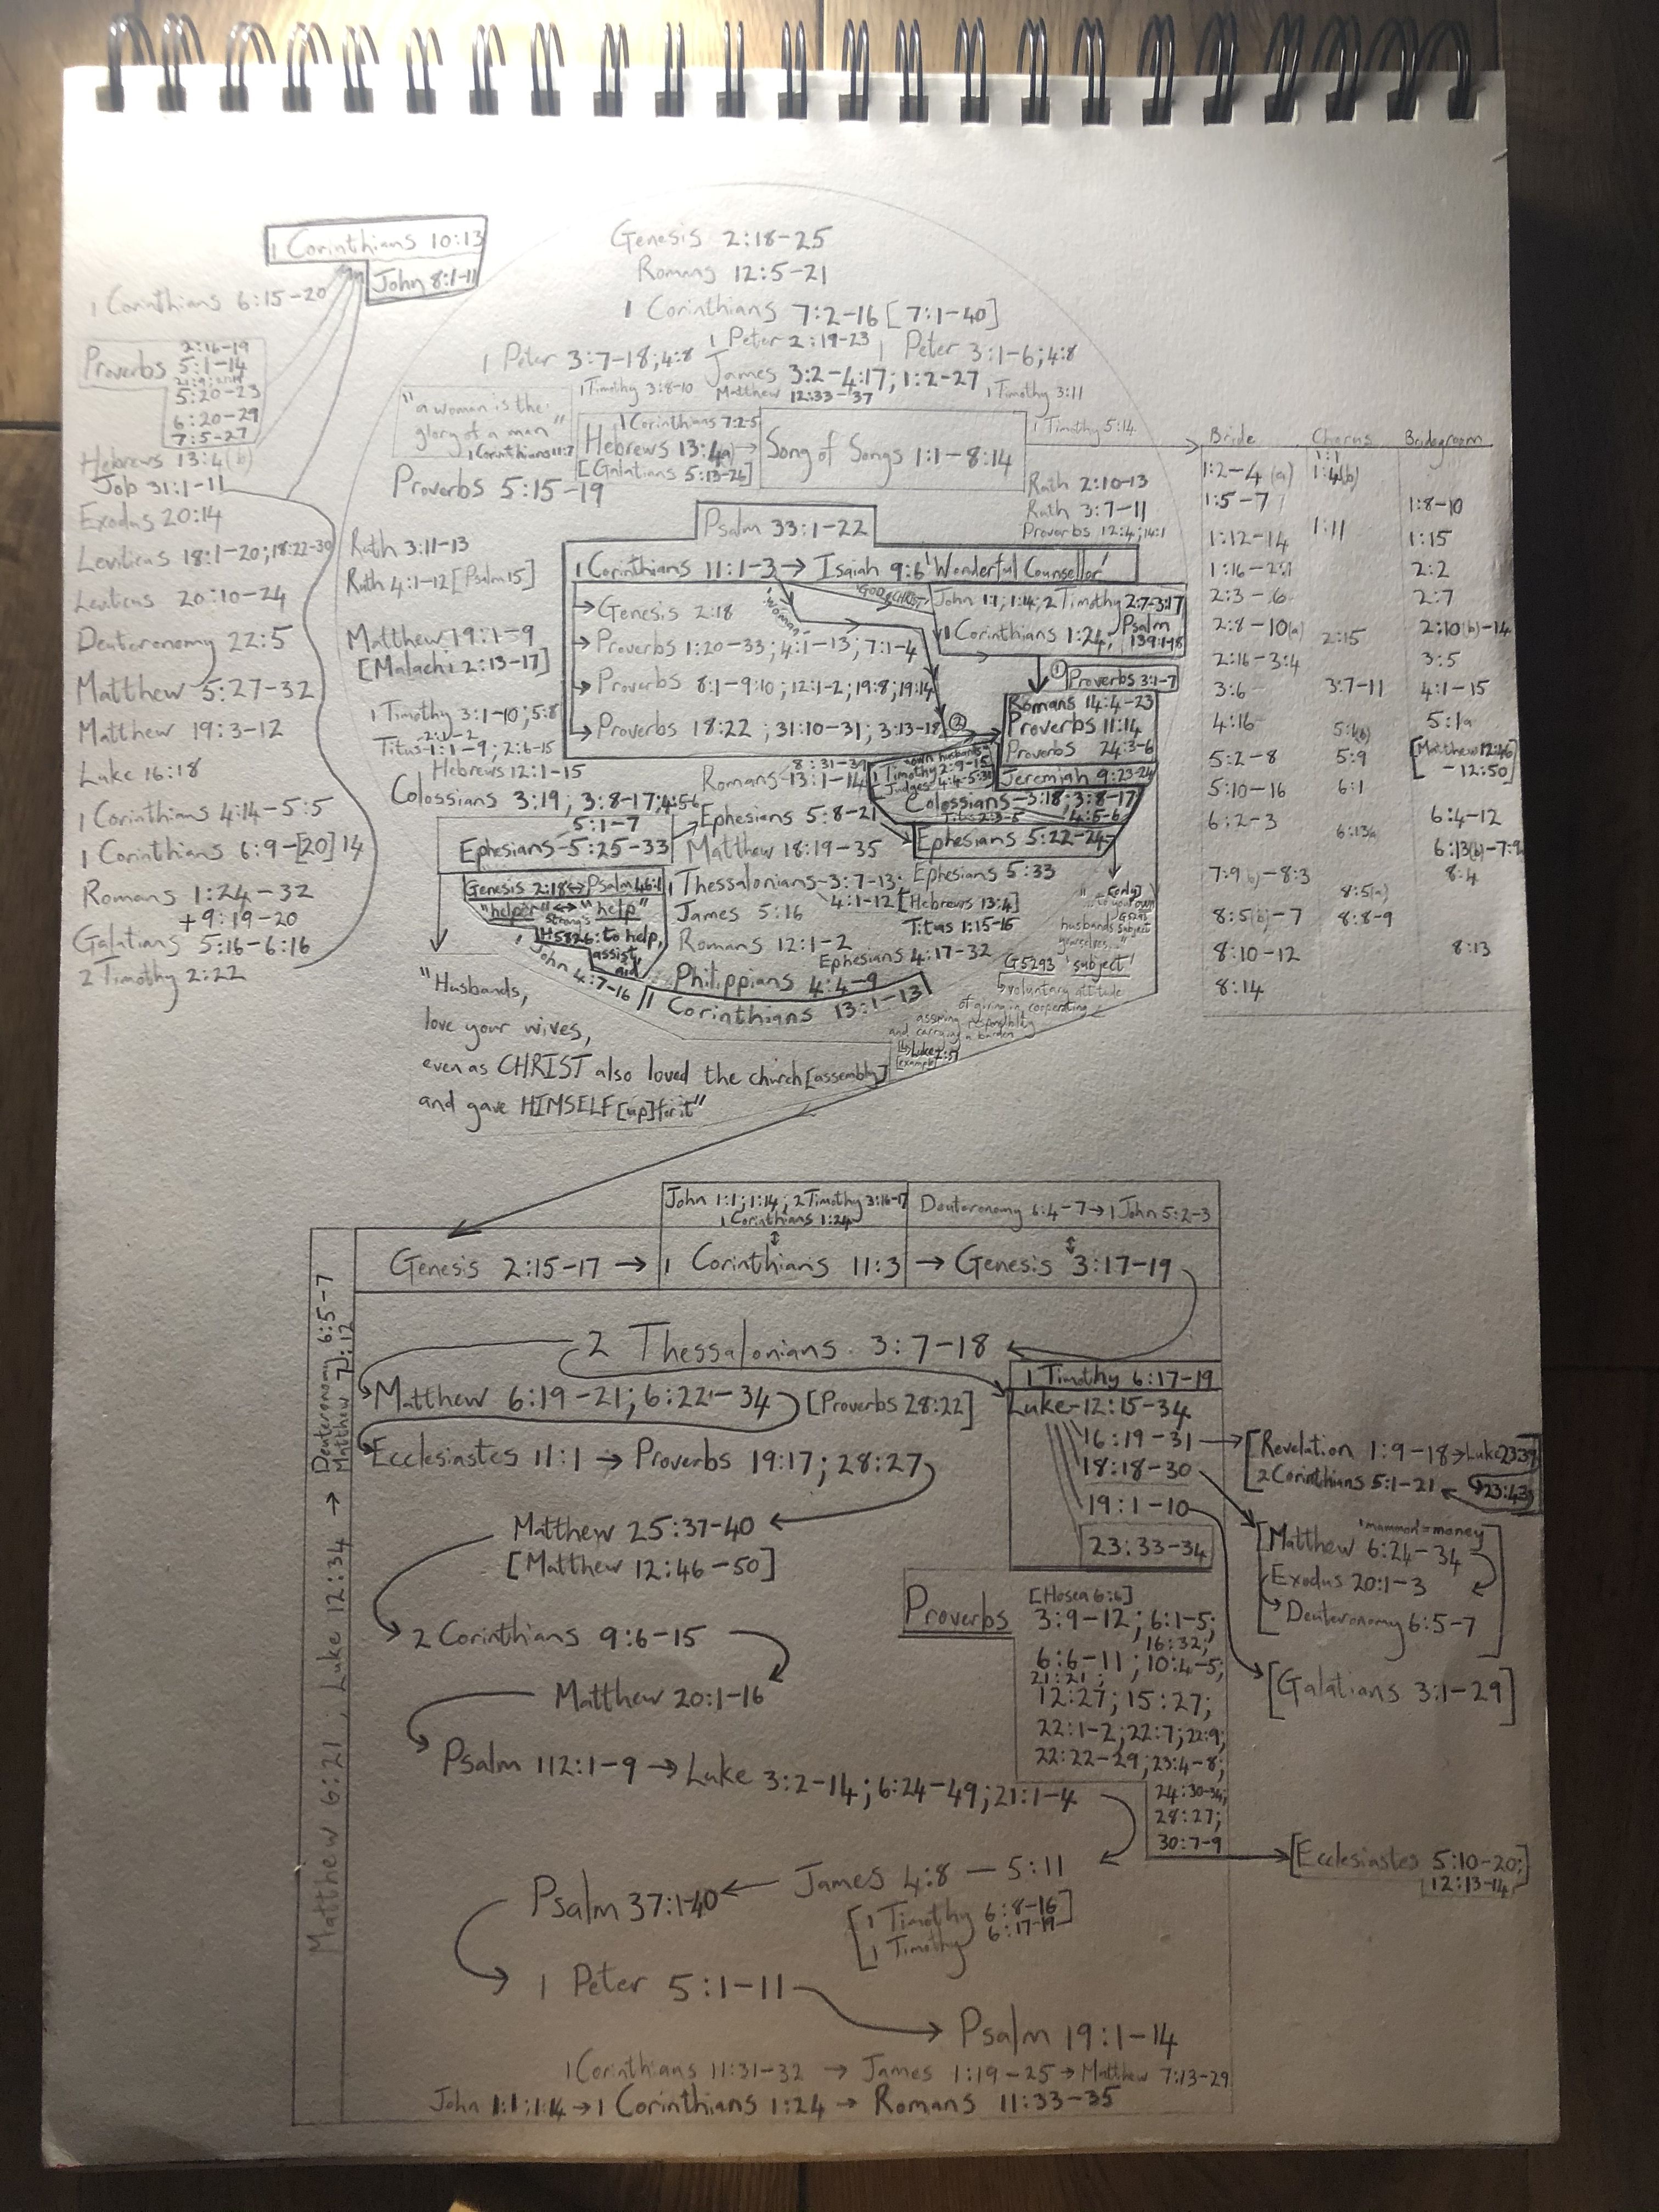 1 Corinthians 10:13
John 8:1-11
1 Corinthians 6:15-20
Proverbs
2:16-19
5:1-14
5:20-23
6:20-29
7:5-27
Hebrews 13:4(b)
Job 31:1-11
Exodus 20:14
Leviticus 18:1-20; 18:22-30
Leviticus 20:10-24
Deuteronomy 22:5
Matthew 5:27-32
Matthew 19:3-12
Luke 16:18
1 Corinthians 4:14-5:5
1 Corinthians 6:9-[20]14
Romans 1:24-32
+9:19-20
Galatians 5:16-6:16
2 Timothy 2:22
Genesis 2:18-25
Romans 12:5-21
1 Corinthians 7:2-16 [7:1-40]
1 Peter 2:19-23
1 Peter 3:7-18; 4:8
1 Peter 3:1-6; 4:8
James 3:2-4:17; 1:2-27
1 Timothy 3:8-10
Matthew 12:33-37
1 Timothy 3:11
"a woman is the
glory of a man"
1 Corinthians 11:7
1 Corinthians 7:2-5
Hebrews 13:4(a)
[Galatians 5:13-26]
Song of Songs 1:1-8:14
1 Timothy 5:14
Proverbs 5:15-19
Ruth 2:10-13
Ruth 3:7-11
Proverbs 12:4; 14:1
Ruth 3:11-13
Ruth 4:1-12 [Psalm 15]
Matthew 19:1-9
[Malachi 2:13-17]
1 Timothy 3:1-10; 5:8
2:1-2
Titus 1:1-9; 2:6-15
Hebrews 12:1-15
Colossians 3:19; 3:8-17; 4:5-6
Psalm 33:1-22
1 Corinthians 11:1-3 → Isaiah 9:6 'Wonderful Counsellor'
'WOMAN'
GOD & CHRIST
Genesis 2:18
Proverbs 1:20-33; 4:1-13; 7:1-4
Proverbs 8:1-9:10; 12:1-2; 19:8; 19:14
Proverbs 18:22; 31:10-31; 3:13-18
John 1:1; 1:14; 2 Timothy 2:7-3:17
1 Corinthians 1:24,
Psalm
139:1-18
①
Proverbs 3:1-7
②
Romans 14:4-23
Proverbs 11:14
Proverbs 24:3-6
Jeremiah 9:23-24
"own husbands"
1 Timothy 2:9-15
Judges 4:4-5:31
Colossians 3:18; 3:8-17
Titus 2:3-5
4:5-6
Ephesians 5:22-24
8:31-39
Romans 13:1-14
5:1-7
Ephesians 5:25-33
Ephesians 5:8-21
Matthew 18:19-35
1 Thessalonians 3:7-13
4:1-12 [Hebrews 13:4]
Ephesians 5:33
James 5:16
Titus 1:15-16
Romans 12:1-2
Ephesians 4:17-32
Philippians 4:4-9
1 Corinthians 13:1-13
Genesis 2:18 ↔ Psalm 46:1
"helper" ↔ "help"
Strong's
H5826: to help,
assist,
aid
1 John 4:7-16
G5293
husbands subject
yourselves..."
G5293 'subject'
↳ voluntary attitude
of giving in, cooperating,
assuming responsibility
and carrying a burden
↳ Luke 2:51
[example]
"Husbands,
love your wives,
even as CHRIST also loved the church [assembly]
and gave HIMSELF [up] for it"
Bride Chorus Bridegroom
1:1
1:2-4(a) 1:4(b)
1:5-7 1:8-10
1:11
1:12-14 1:15
1:16-2:1 2:2
2:3-6 2:7
2:8-10(a) 2:15 2:10(b)-14
2:16-3:4 3:5
3:6 3:7-11 4:1-15
4:16 5:1(b) 5:1a
5:2-8 5:9 [Matthew 12:46
-12:50]
5:10-16 6:1
6:2-3 6:13a 6:4-12
6:13(b)-7:9a
7:9(b)-8:3 8:5(a) 8:4
8:5(b)-7 8:8-9
8:10-12 8:13
8:14
John 1:1; 1:14; 2 Timothy 3:16-17
1 Corinthians 1:24
Deuteronomy 6:4-7 → 1 John 5:2-3
Genesis 2:15-17 → 1 Corinthians 11:3 → Genesis 3:17-19
Matthew 6:21, Luke 12:34 → Deuteronomy 6:5-7
Matthew 7:12
2 Thessalonians 3:7-18
Matthew 6:19-21; 6:22-34 [Proverbs 28:22]
Ecclesiastes 11:1 → Proverbs 19:17; 28:27
Matthew 25:37-40
[Matthew 12:46-50]
2 Corinthians 9:6-15
Matthew 20:1-16
Psalm 112:1-9 → Luke 3:2-14; 6:24-49; 21:1-4
Psalm 37:1-40 ← James 4:8-5:11
[1 Timothy 6:8-16]
1 Timothy 6:17-19
1 Peter 5:1-11
Psalm 19:1-14
1 Corinthians 11:31-32 → James 1:19-25 → Matthew 7:13-29
John 1:1; 1:14 → 1 Corinthians 1:24 → Romans 11:33-35
1 Timothy 6:17-19
Luke 12:15-34
16:19-31
18:18-30
19:1-10
23:33-34
[Revelation 1:9-18 → Luke 23:39
2 Corinthians 5:1-21 ← 23:43]
'mammon' = money
[Matthew 6:24-34
Exodus 20:1-3
Deuteronomy 6:5-7]
[Galatians 3:1-29]
[Hosea 6:6]
Proverbs
3:9-12; 6:1-5;
16:32;
6:6-11; 10:4-5;
21:21;
12:27; 15:27;
22:1-2; 22:7; 22:9;
22:22-29; 23:4-8;
24:30-34;
28:27;
30:7-9
[Ecclesiastes 5:10-20;]
12:13-14